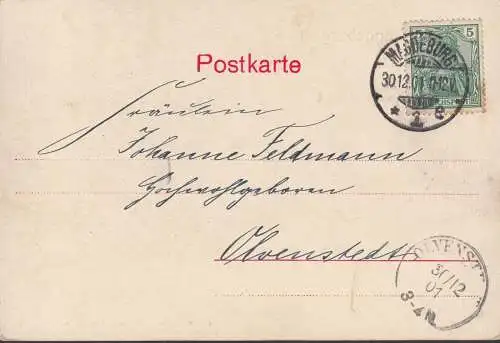 Postkarte
5
MAGDEBURG
30.12.01
* 1 e
Fräulein
Johanne Feldmann
Hochwohlgeboren
Olvenstedt
OLVENST
30/12
01
3-4N